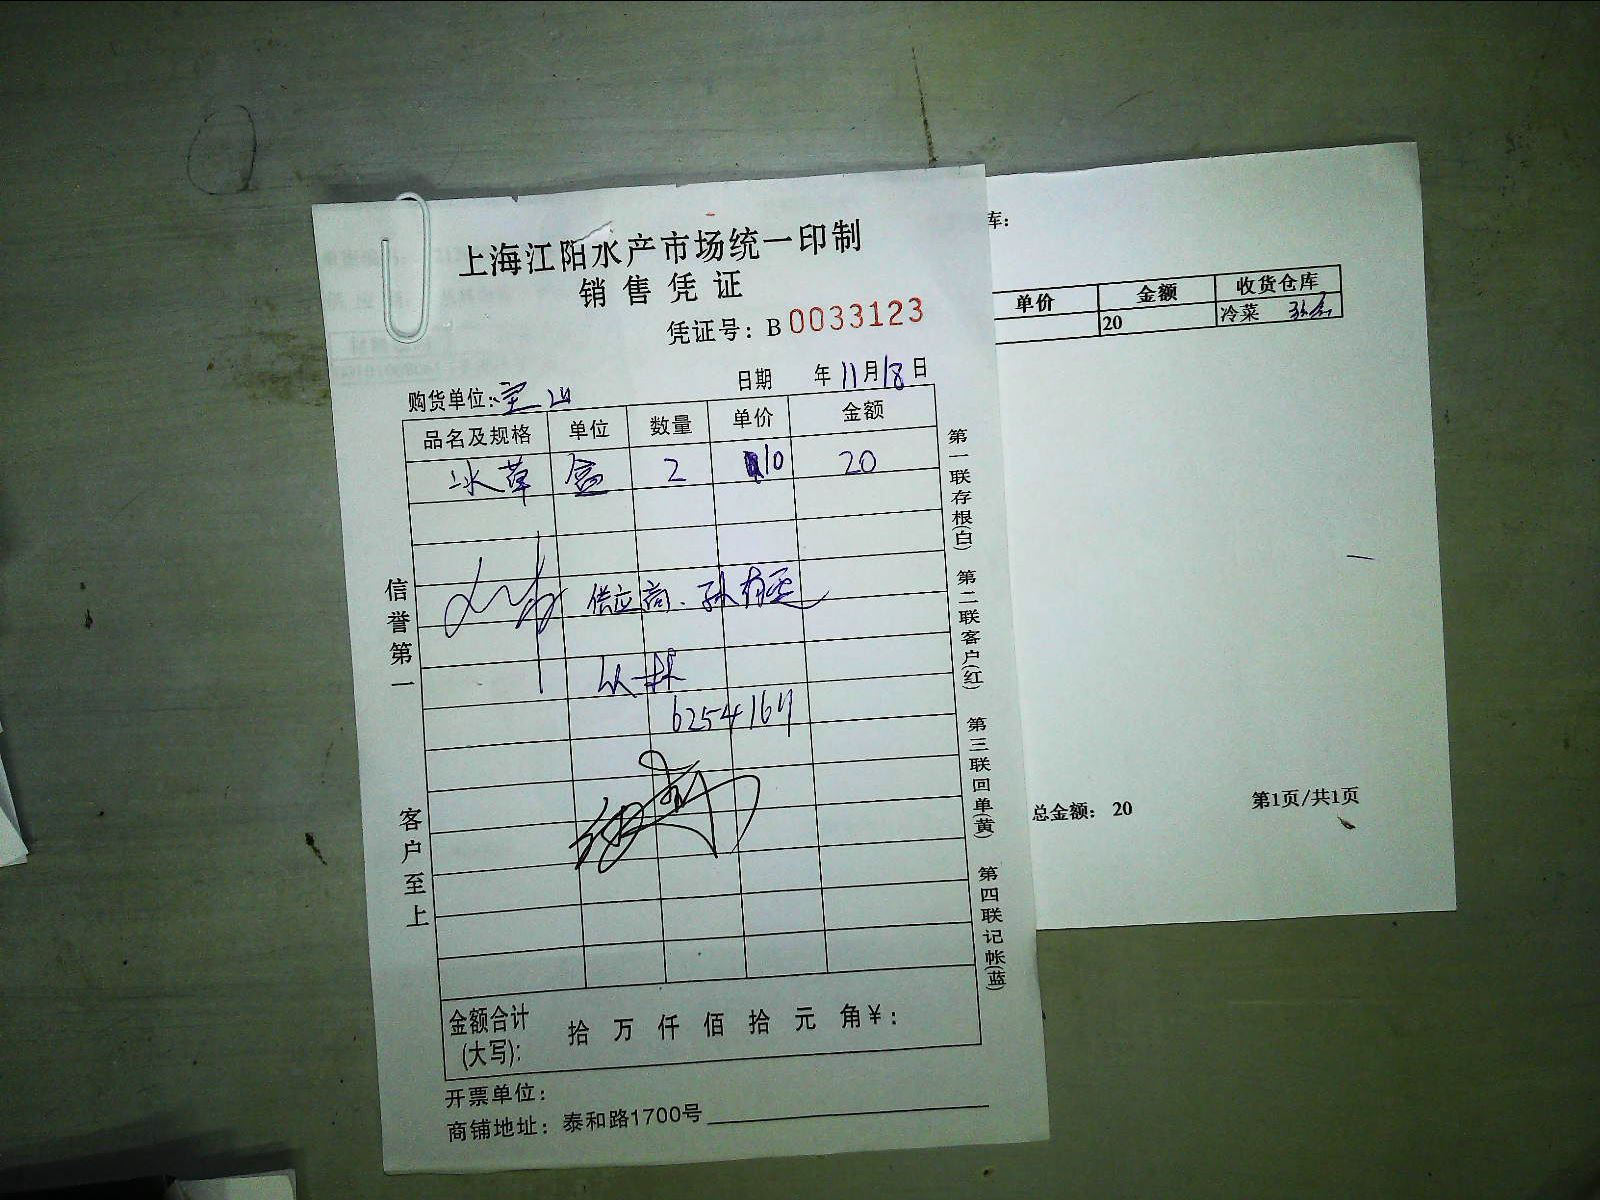 上海江阳水产市场统一印制
销售凭证
凭证号：B 0033123
购货单位：宝山 日期 年11月18日
品名及规格 单位 数量 单价 金额
冰草 盒 2 10 20
供应商、孙有
6254164
信誉第一
客户至上
第一联存根(白) 第二联客户(红) 第三联回单(黄) 第四联记帐(蓝)
金额合计(大写)： 拾 万 仟 佰 拾 元 角￥：
开票单位：
商铺地址：泰和路1700号
库：
单价 金额 收货仓库
20 冷菜
总金额： 20 第1页/共1页